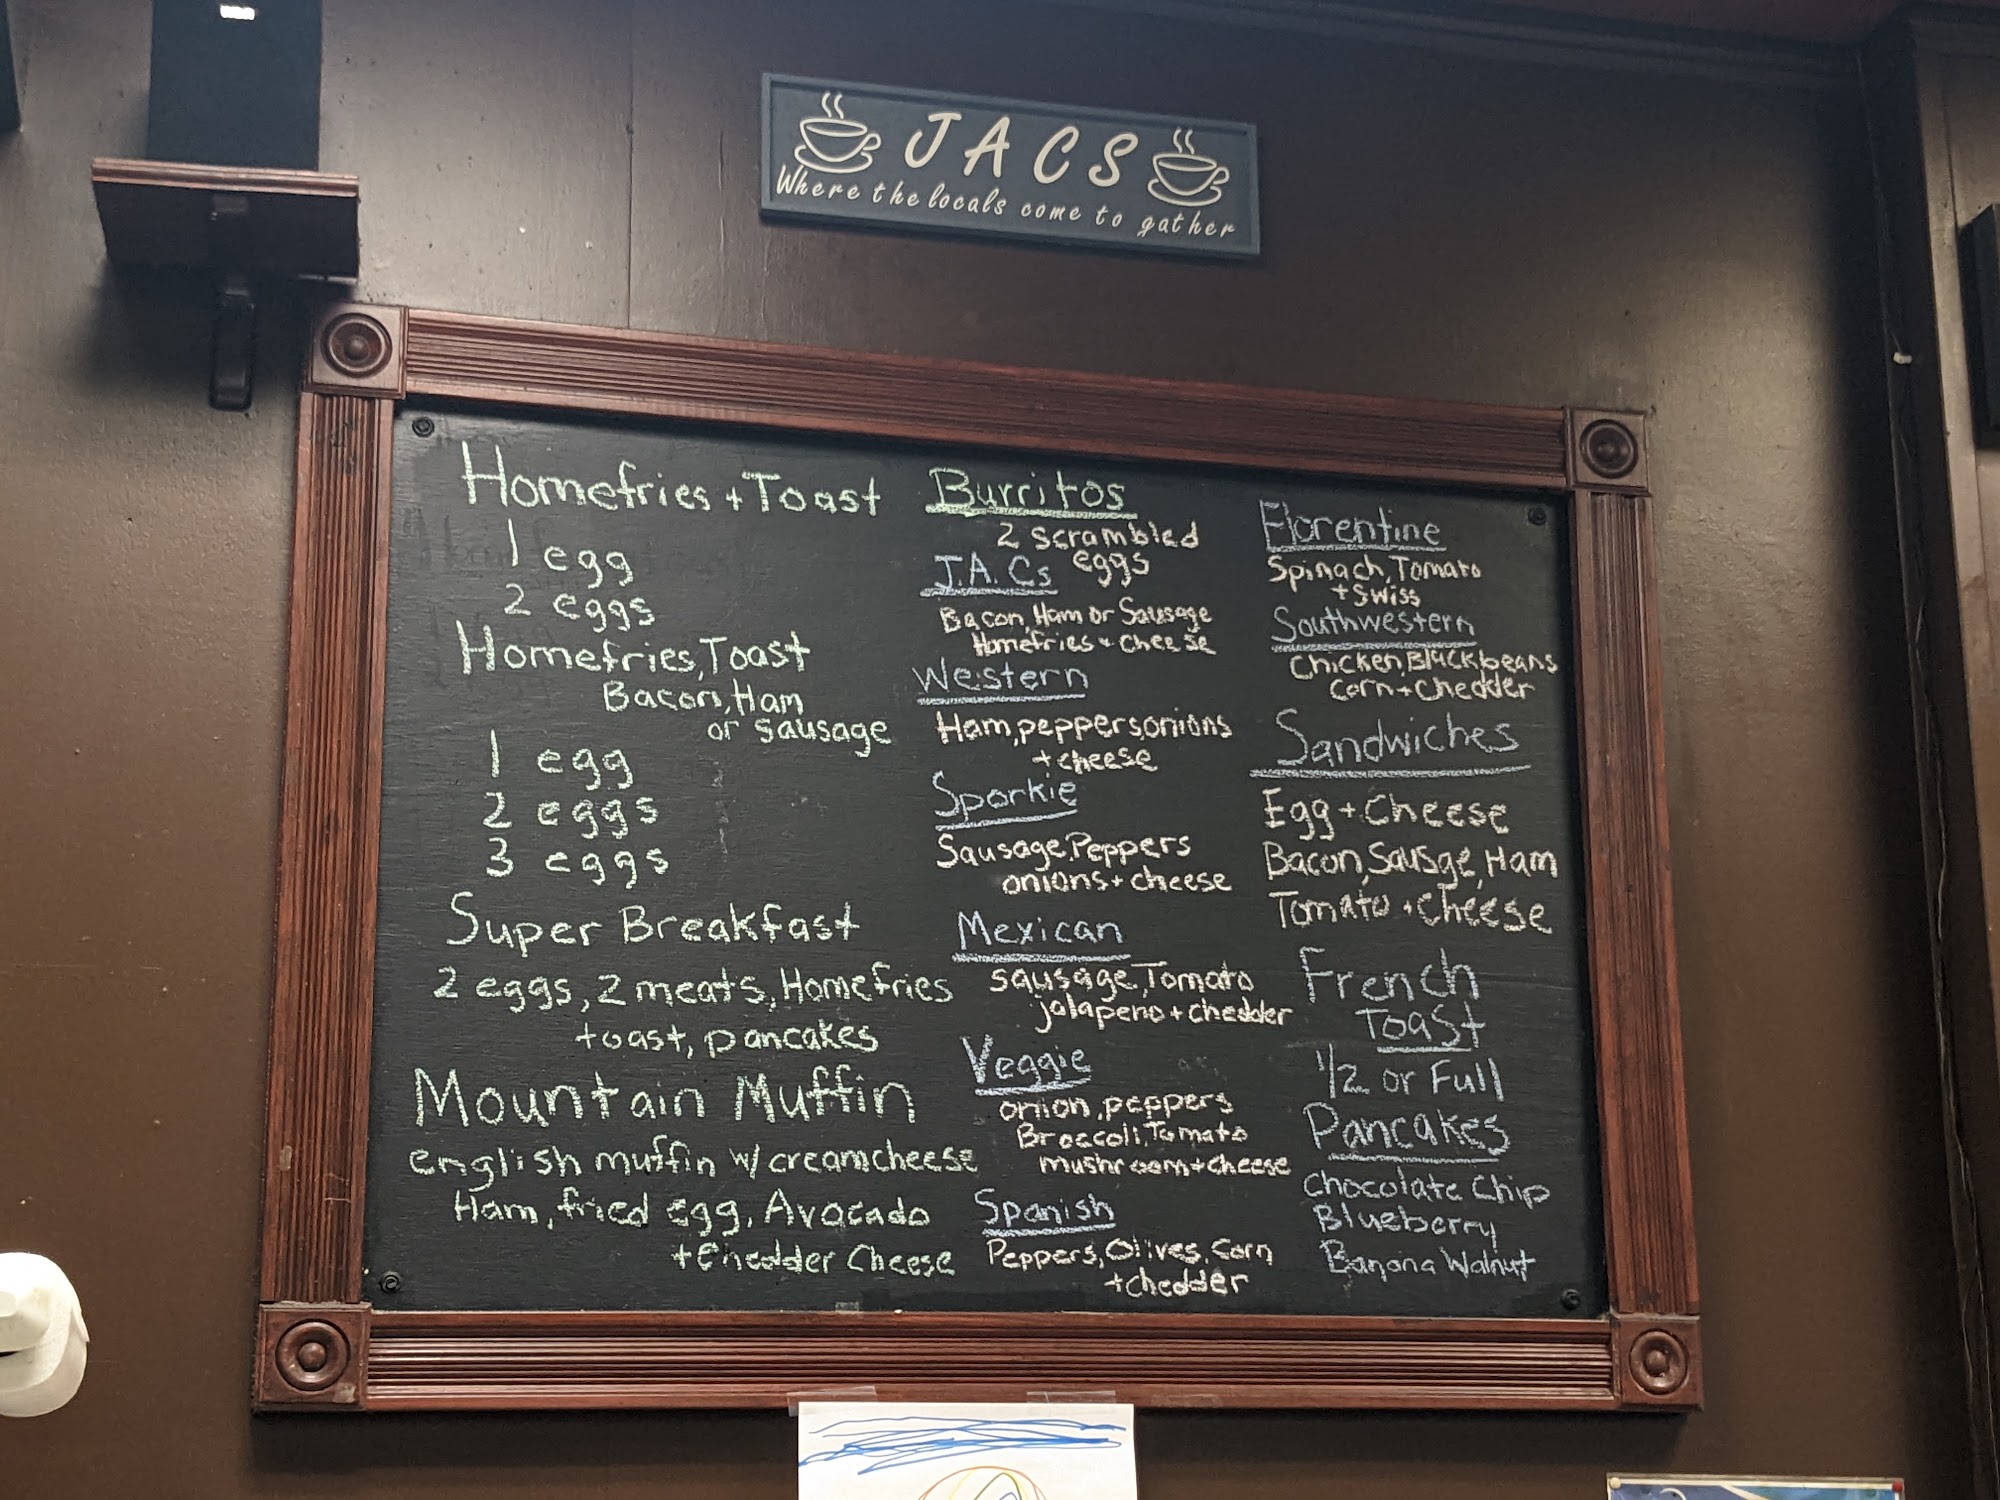 JACS
Where the locals come to gather
Homefries + Toast
1 egg
2 eggs
Homefries, Toast
Bacon, Ham
or sausage
1 egg
2 eggs
3 eggs
Super Breakfast
2 eggs, 2 meats, Homefries
toast, pancakes
Mountain Muffin
english muffin w/ creamcheese
Ham, fried egg, Avocado
+ Chedder Cheese
Burritos
2 scrambled
eggs
J.A.Cs
Bacon, Ham or Sausage
Homefries + cheese
Western
Ham, peppers, onions
+ cheese
Sporkie
Sausage, Peppers
onions + cheese
Mexican
sausage, Tomato
jalapeno + chedder
Veggie
onion, peppers
Broccoli, Tomato
mushroom + cheese
Spanish
Peppers, Olives, Corn
+ chedder
Florentine
Spinach, Tomato
+ swiss
Southwestern
Chicken, Black beans
corn + chedder
Sandwiches
Egg + Cheese
Bacon, Sausge, Ham
Tomato + cheese
French
Toast
1/2 or Full
Pancakes
Chocolate Chip
Blueberry
Banana Walnut